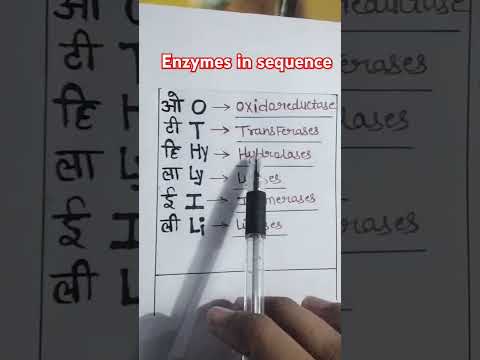 Enzymes in sequence
ओ O → Oxidoreductase
टी T → Transferases
हि Hy → Hydrolases
ला Ly →
ई I →
ली Li →